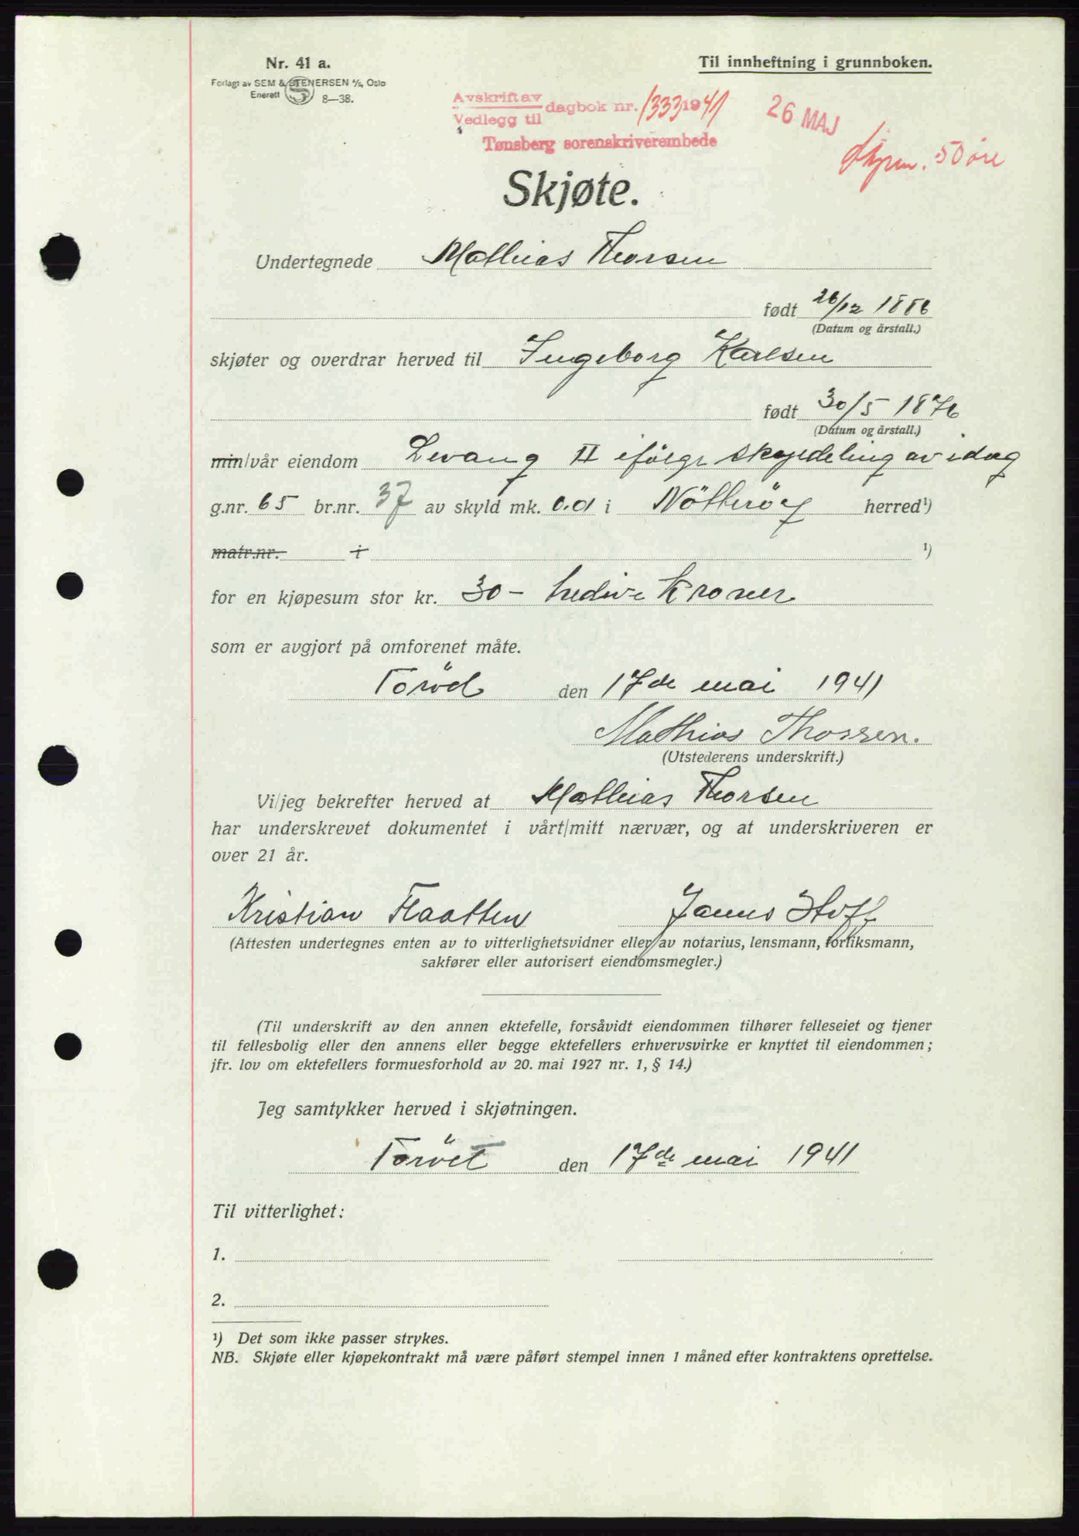 Nr. 41 a.
Til innheftning i grunnboken.
Forlagt av SEM & STENERSEN A/S, Oslo
Enerett 8—38.
Avskrift av
Vedlegg til dagbok nr. 1333 1941
Tønsberg sorenskriverembede
26 MAJ
50 øre
Skjøte.
Undertegnede Mathias Thorsen
født 26/12 1886
(Datum og årstall.)
skjøter og overdrar herved til Ingeborg Karlsen
født 30/5 1876
(Datum og årstall.)
min/vår eiendom Levang II ifölge skyldeling av idag
g.nr. 65 br.nr. 37 av skyld mk. 0.01 i Nötteröy herred¹)
matr.nr. ¹)
for en kjøpesum stor kr. 30- tredive kroner
som er avgjort på omforenet måte.
Toröd den 17de mai 1941
Mathias Thorsen.
(Utstederens underskrift.)
Vi/jeg bekrefter herved at Mathias Thorsen
har underskrevet dokumentet i vårt/mitt nærvær, og at underskriveren er
over 21 år.
Kristian Flaatten Hoff
(Attesten undertegnes enten av to vitterlighetsvidner eller av notarius, lensmann, forliksmann,
sakfører eller autorisert eiendomsmegler.)
(Til underskrift av den annen ektefelle, forsåvidt eiendommen tilhører felleseiet og tjener
til fellesbolig eller den annens eller begge ektefellers erhvervsvirke er knyttet til eiendommen;
jfr. lov om ektefellers formuesforhold av 20. mai 1927 nr. 1, § 14.)
Jeg samtykker herved i skjøtningen.
Toröd den 17de mai 1941
Til vitterlighet:
1.
2.
¹) Det som ikke passer strykes.
NB. Skjøte eller kjøpekontrakt må være påført stempel innen 1 måned efter kontraktens oprettelse.